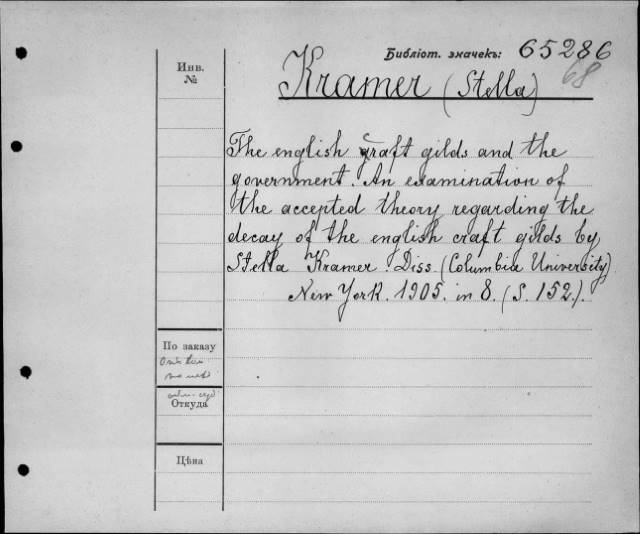 Библіот. значекъ: 65286
68
Инв.
№
Kramer (Stella)
The english craft gilds and the
government. An examination of
the accepted theory regarding the
decay of the english craft gilds by
Stella Kramer. Diss. (Columbia University)
New York. 1905. in 8. (S. 152.).
По заказу
Откуда
Цѣна